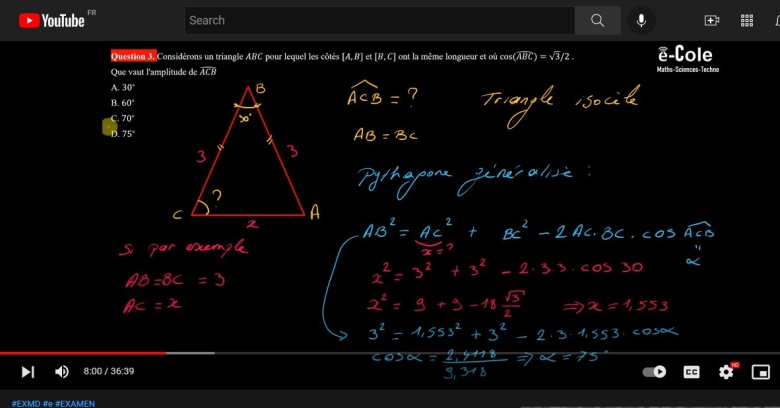 YouTube FR
Search
Question 3. Considérons un triangle ABC pour lequel les côtés [A, B] et [B, C] ont la même longueur et où cos(ABC) = √3/2 .
Que vaut l'amplitude de ACB
A. 30°
B. 60°
C. 70°
D. 75°
ē-Cole
Maths-Sciences-Techno
B
30°
3
3
?
C
A
x
ACB = ?
Triangle isocèle
AB = BC
Pythagore généralisé :
AB² = AC² + BC² - 2 AC. BC. cos ACB
x = ?
"
α
Si par exemple
AB = BC = 3
AC = x
x² = 3² + 3² - 2.3.3. cos 30
x² = 9 + 9 - 18 √3/2 ⇒ x = 1,553
3² = 1,553² + 3² - 2.3.1,553. cos α
cos α = 2,4118/9,318 ⇒ α = 75°
8:00 / 36:39
CC
HD
#EXMD #e #EXAMEN